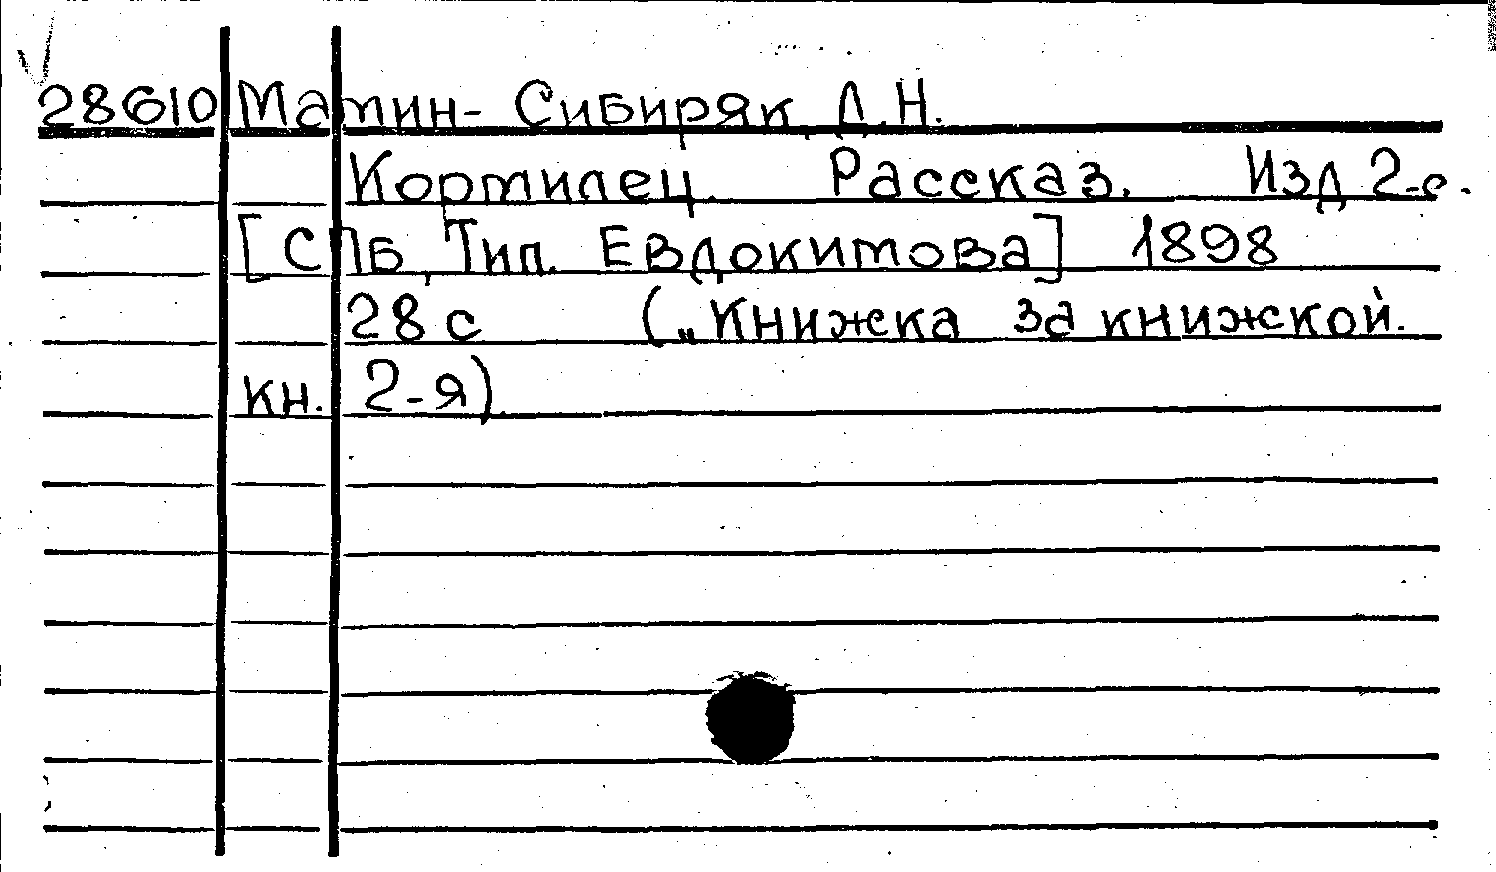 28610 Мамин-Сибиряк, Д.Н.
Кормилец. Рассказ. Изд 2-е.
[СПБ, Тип. Евдокимова] 1898
28 с („Книжка за книжкой.
кн. 2-я).